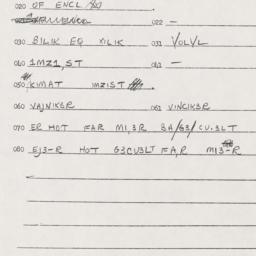 020 OF ENCL
022 —
030 BILIK EQ XILIK 031 VOLVL
040 1MZ1,ST 041 —
050 KIMAT IMZIST
060 VAJNIKSR 061 VINCIKSR
070 ER HOT FAR MI,3R BA/G3/CU.3LT
080 EJ3-R HOT G3CU3LT FA,R MI3-R